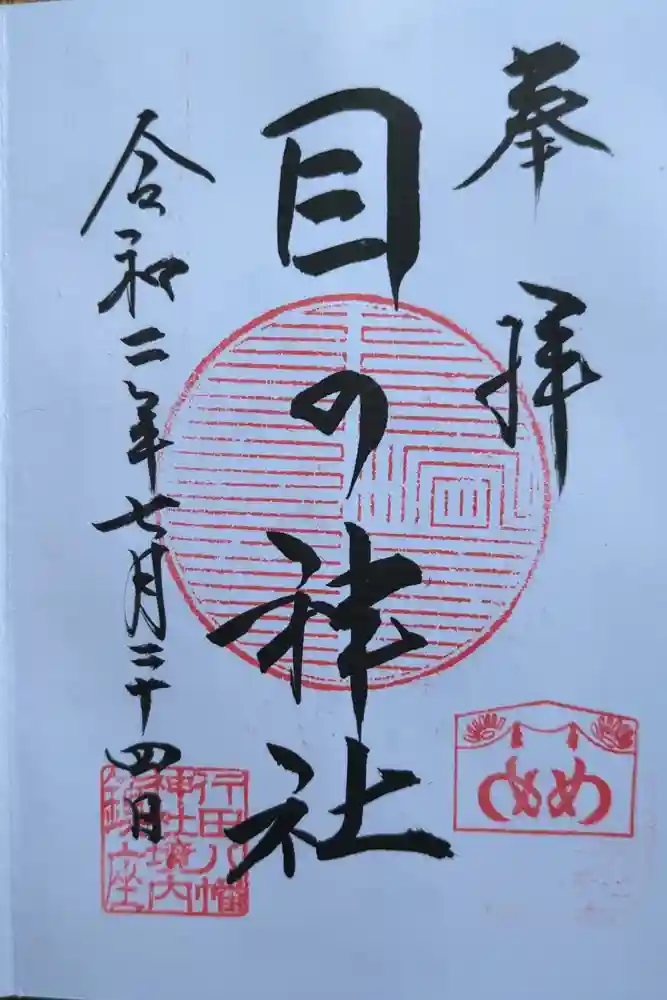 奉拝
目の神社
令和二年七月二十四日
行田八幡
神社境内
鎮座
めめ